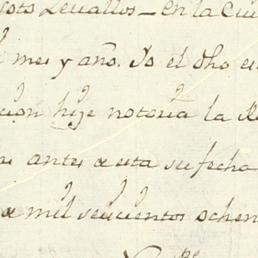 Soto Zevallos – En la Ciu
mes y año. Yo el dho es
cion hize notoria la R
antes a esta su fecha
a mil seiscientos ochen